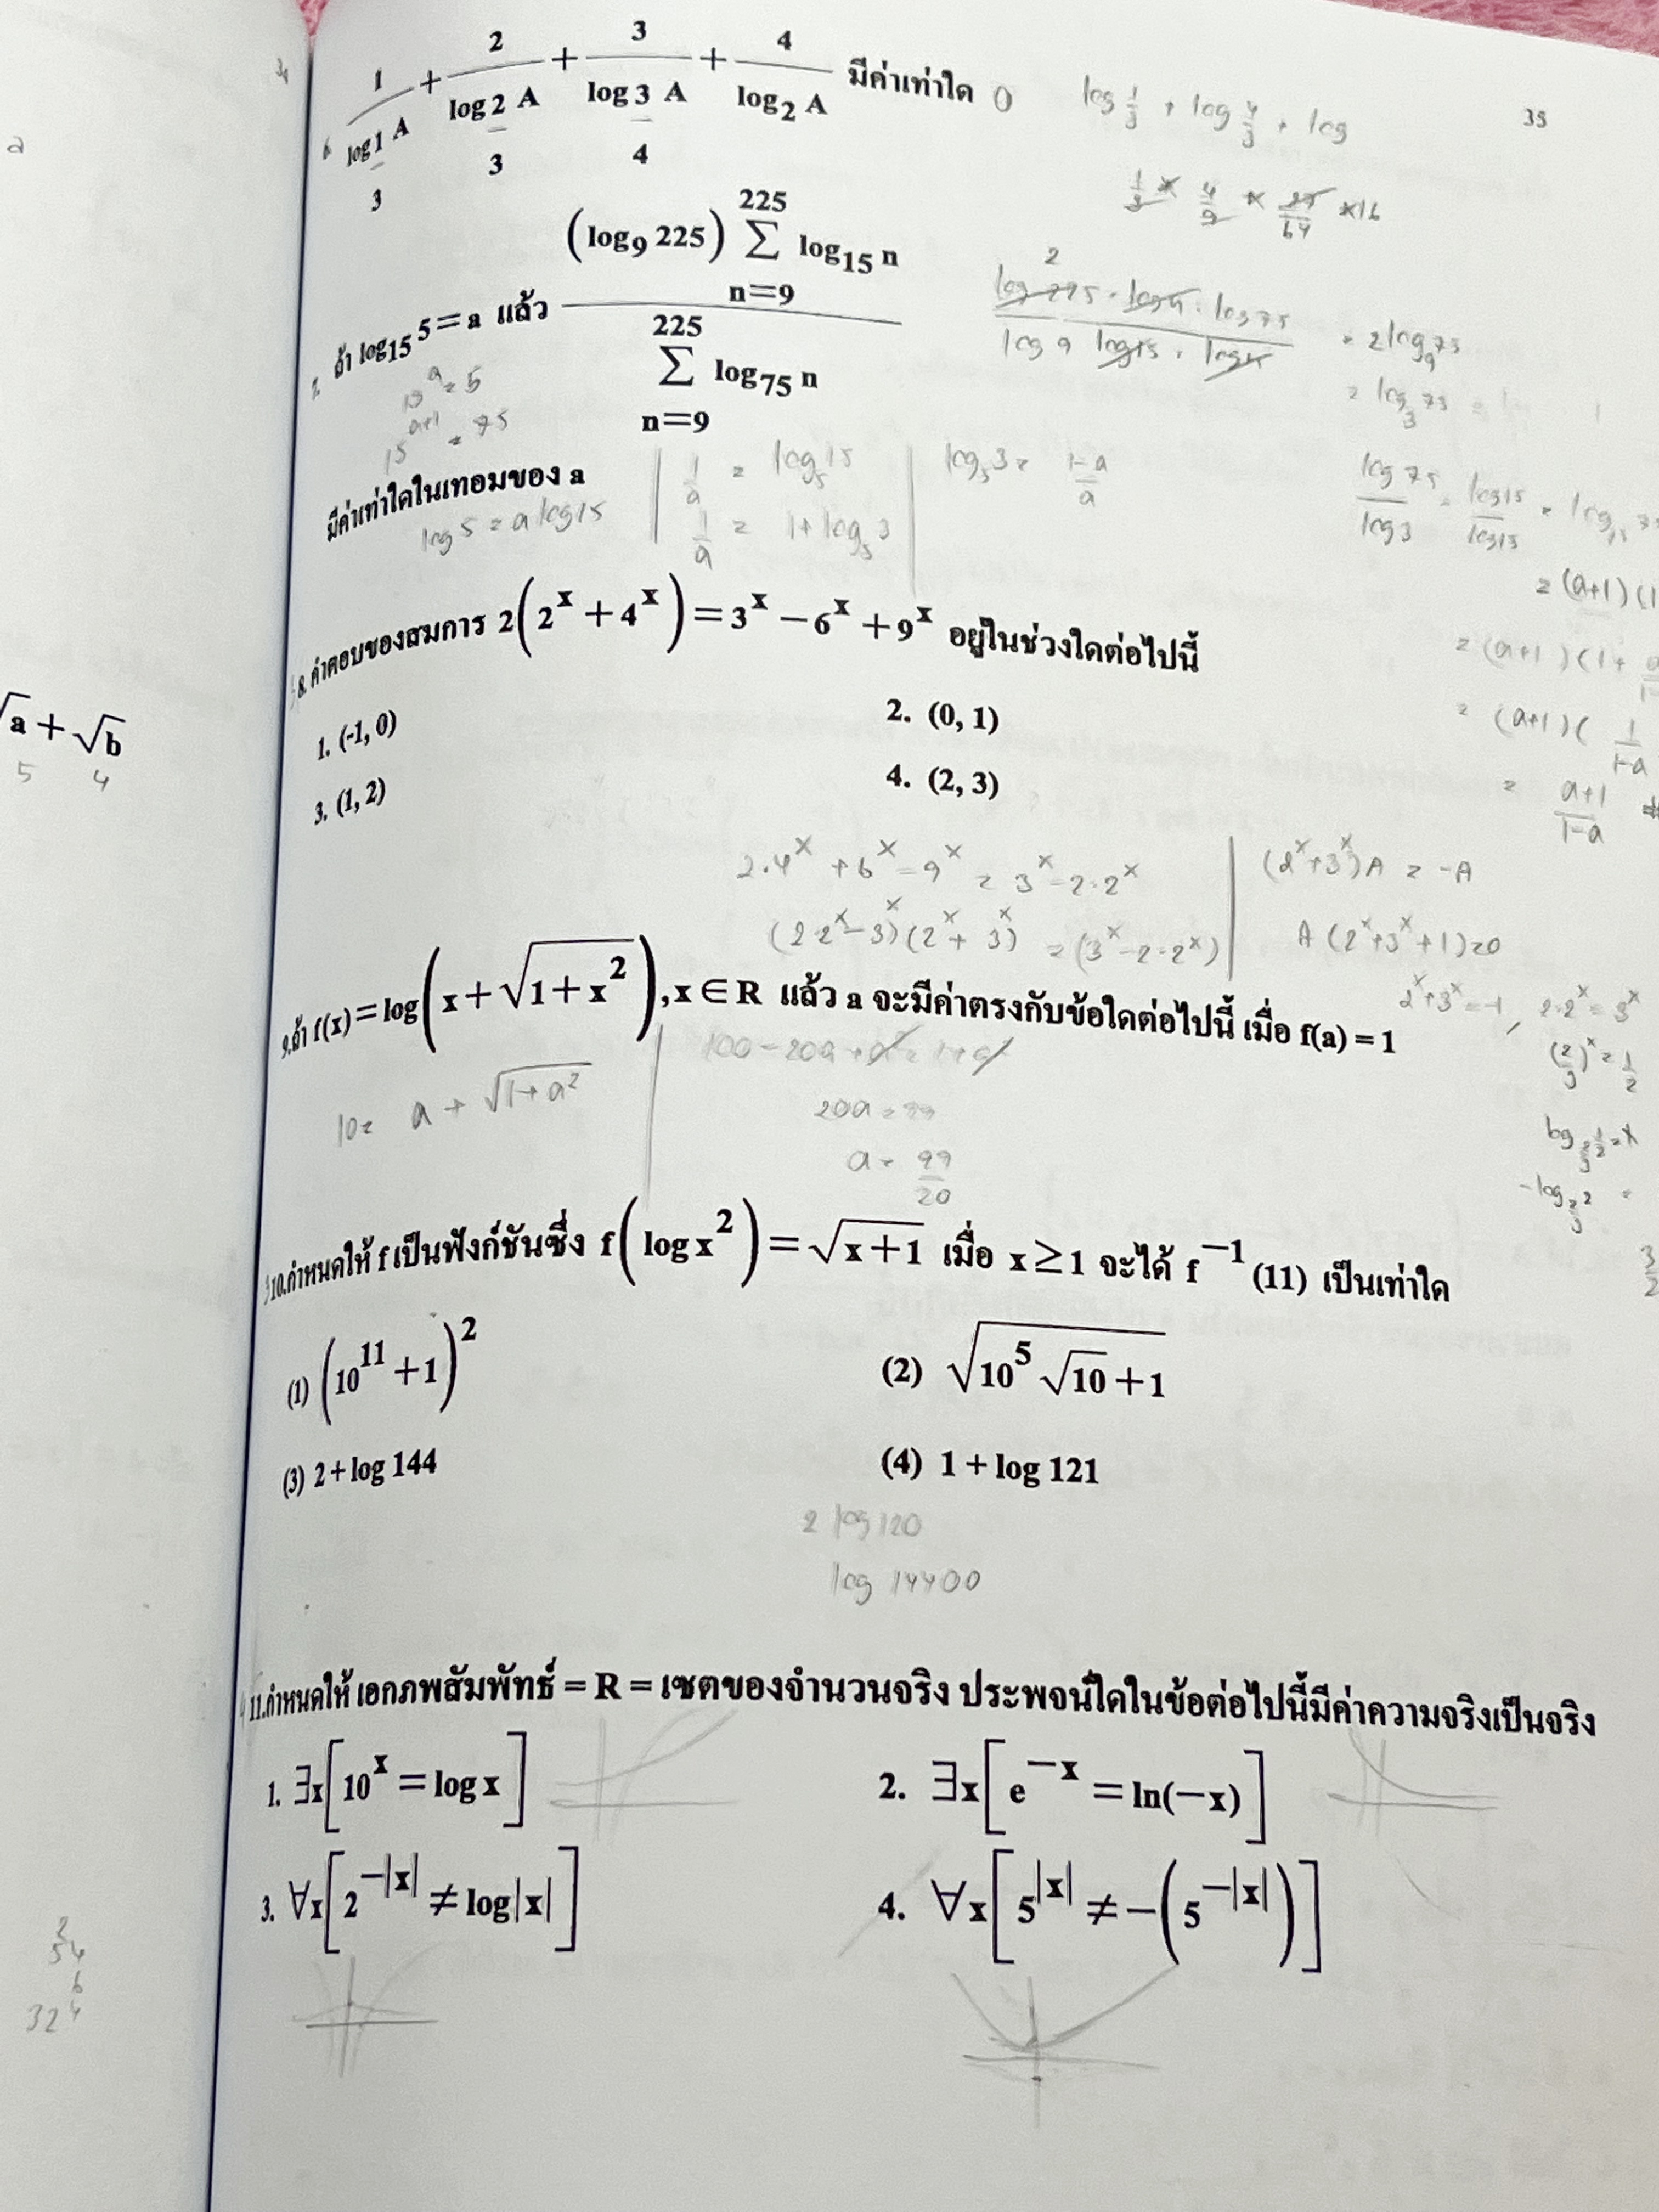 35
6. 1/log_{1/3} A + 2/log_{2/3} A + 3/log_{3/4} A + 4/log_2 A มีค่าเท่าใด 0
log_{1/3} + log_{4/3} + log
1/3 × 4/9 × 27/64 ×16
7. ถ้า log_15 5 = a แล้ว (log_9 225) Σ_{n=9}^{225} log_15 n / Σ_{n=9}^{225} log_75 n
= 2log_9 75
= log_3 75
15^a = 5
15^{a+1} = 75
มีค่าเท่าใดในเทอมของ a
log 5 = a log 15
1/a = log_5 15
1/a = 1 + log_5 3
log_5 3 = (1-a)/a
= (a+1)/(1-a)
8. คำตอบของสมการ 2(2^x + 4^x) = 3^x − 6^x + 9^x อยู่ในช่วงใดต่อไปนี้
1. (-1, 0) 2. (0, 1)
3. (1, 2) 4. (2, 3)
2·4^x + 6^x − 9^x = 3^x − 2·2^x
(2·2^x − 3^x)(2^x + 3^x) = (3^x − 2·2^x)
(2^x+3^x)A = -A
A(2^x+3^x+1)=0
2^x+3^x=-1, 2·2^x = 3^x
(2/3)^x = 1/2
9.ถ้า f(x) = log(x + √(1 + x^2)), x ∈ R แล้ว a จะมีค่าตรงกับข้อใดต่อไปนี้ เมื่อ f(a) = 1
10 = a + √(1+a^2)
100 − 20a + a^2 = 1 + a^2
20a = 99
a = 99/20
10.กำหนดให้ f เป็นฟังก์ชันซึ่ง f(log x^2) = √(x+1) เมื่อ x ≥ 1 จะได้ f^{−1}(11) เป็นเท่าใด
(1) (10^11 + 1)^2 (2) √(10^5 √10 + 1)
(3) 2 + log 144 (4) 1 + log 121
2 log 120
log 14400
11.กำหนดให้ เอกภพสัมพัทธ์ = R = เซตของจำนวนจริง ประพจน์ใดในข้อต่อไปนี้มีค่าความจริงเป็นจริง
1. ∃x[10^x = log x] 2. ∃x[e^{−x} = ln(−x)]
3. ∀x[2^{−|x|} ≠ log|x|] 4. ∀x[5^{|x|} ≠ −(5^{−|x|})]
√a + √b
5 4
54
6
324